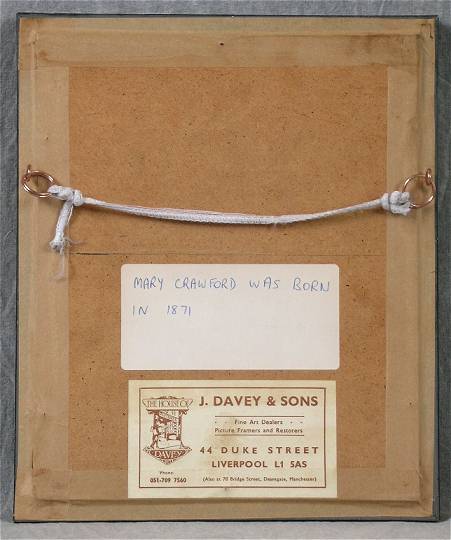 MARY CRAWFORD WAS BORN
IN 1871
THE HOUSE OF
DAVEY
Phone:
051-709 7560
J. DAVEY & SONS
· · Fine Art Dealers · ·
Picture Framers and Restorers
44 DUKE STREET
LIVERPOOL L1 5AS
(Also at 70 Bridge Street, Deansgate, Manchester)